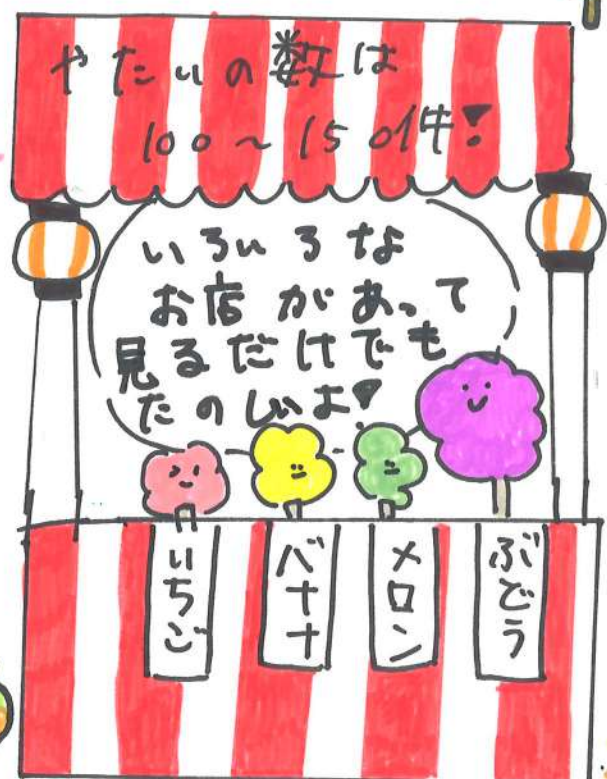 やたいの数は
100～150件！
いろいろな
お店があって
見るだけでも
たのしいよ！
いちご
バナナ
メロン
ぶどう